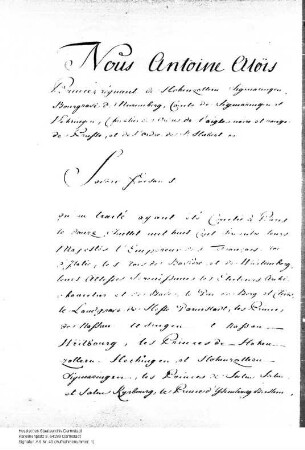 Nous Antoine Alois
Prince régnant de Hohenzollern Sigmaringen,
Bourgrave de Nuremberg, Comte de Sigmaringen et
Vehringen, Chevalier des Ordres de l'aigle noire et rouge
de Prusse, et de l'ordre de St Hubert &
Savoir faisons
qu'un traité ayant été conclu à Paris
le douze Juillet mil huit cent six entre leurs
Majestés l'Empereur des Français, roi
d'Italie, les rois de Bavière et de Würtemberg,
leurs Altesses Sérénissimes les Electeurs Archi-
chancelier et de Bade, le Duc de Berg et Cleves,
le Landgrave de Hesse Darmstadt, les Princes
de Nassau Usingen et Nassau
Weilbourg, les Princes de Hohen-
zollern Hechingen et Hohenzollern-
Sigmaringen, les Princes de Salm Salm,
et Salm Kyrbourg, le Prince d'Isembourg Birstein,
Hessisches Staatsarchiv Darmstadt